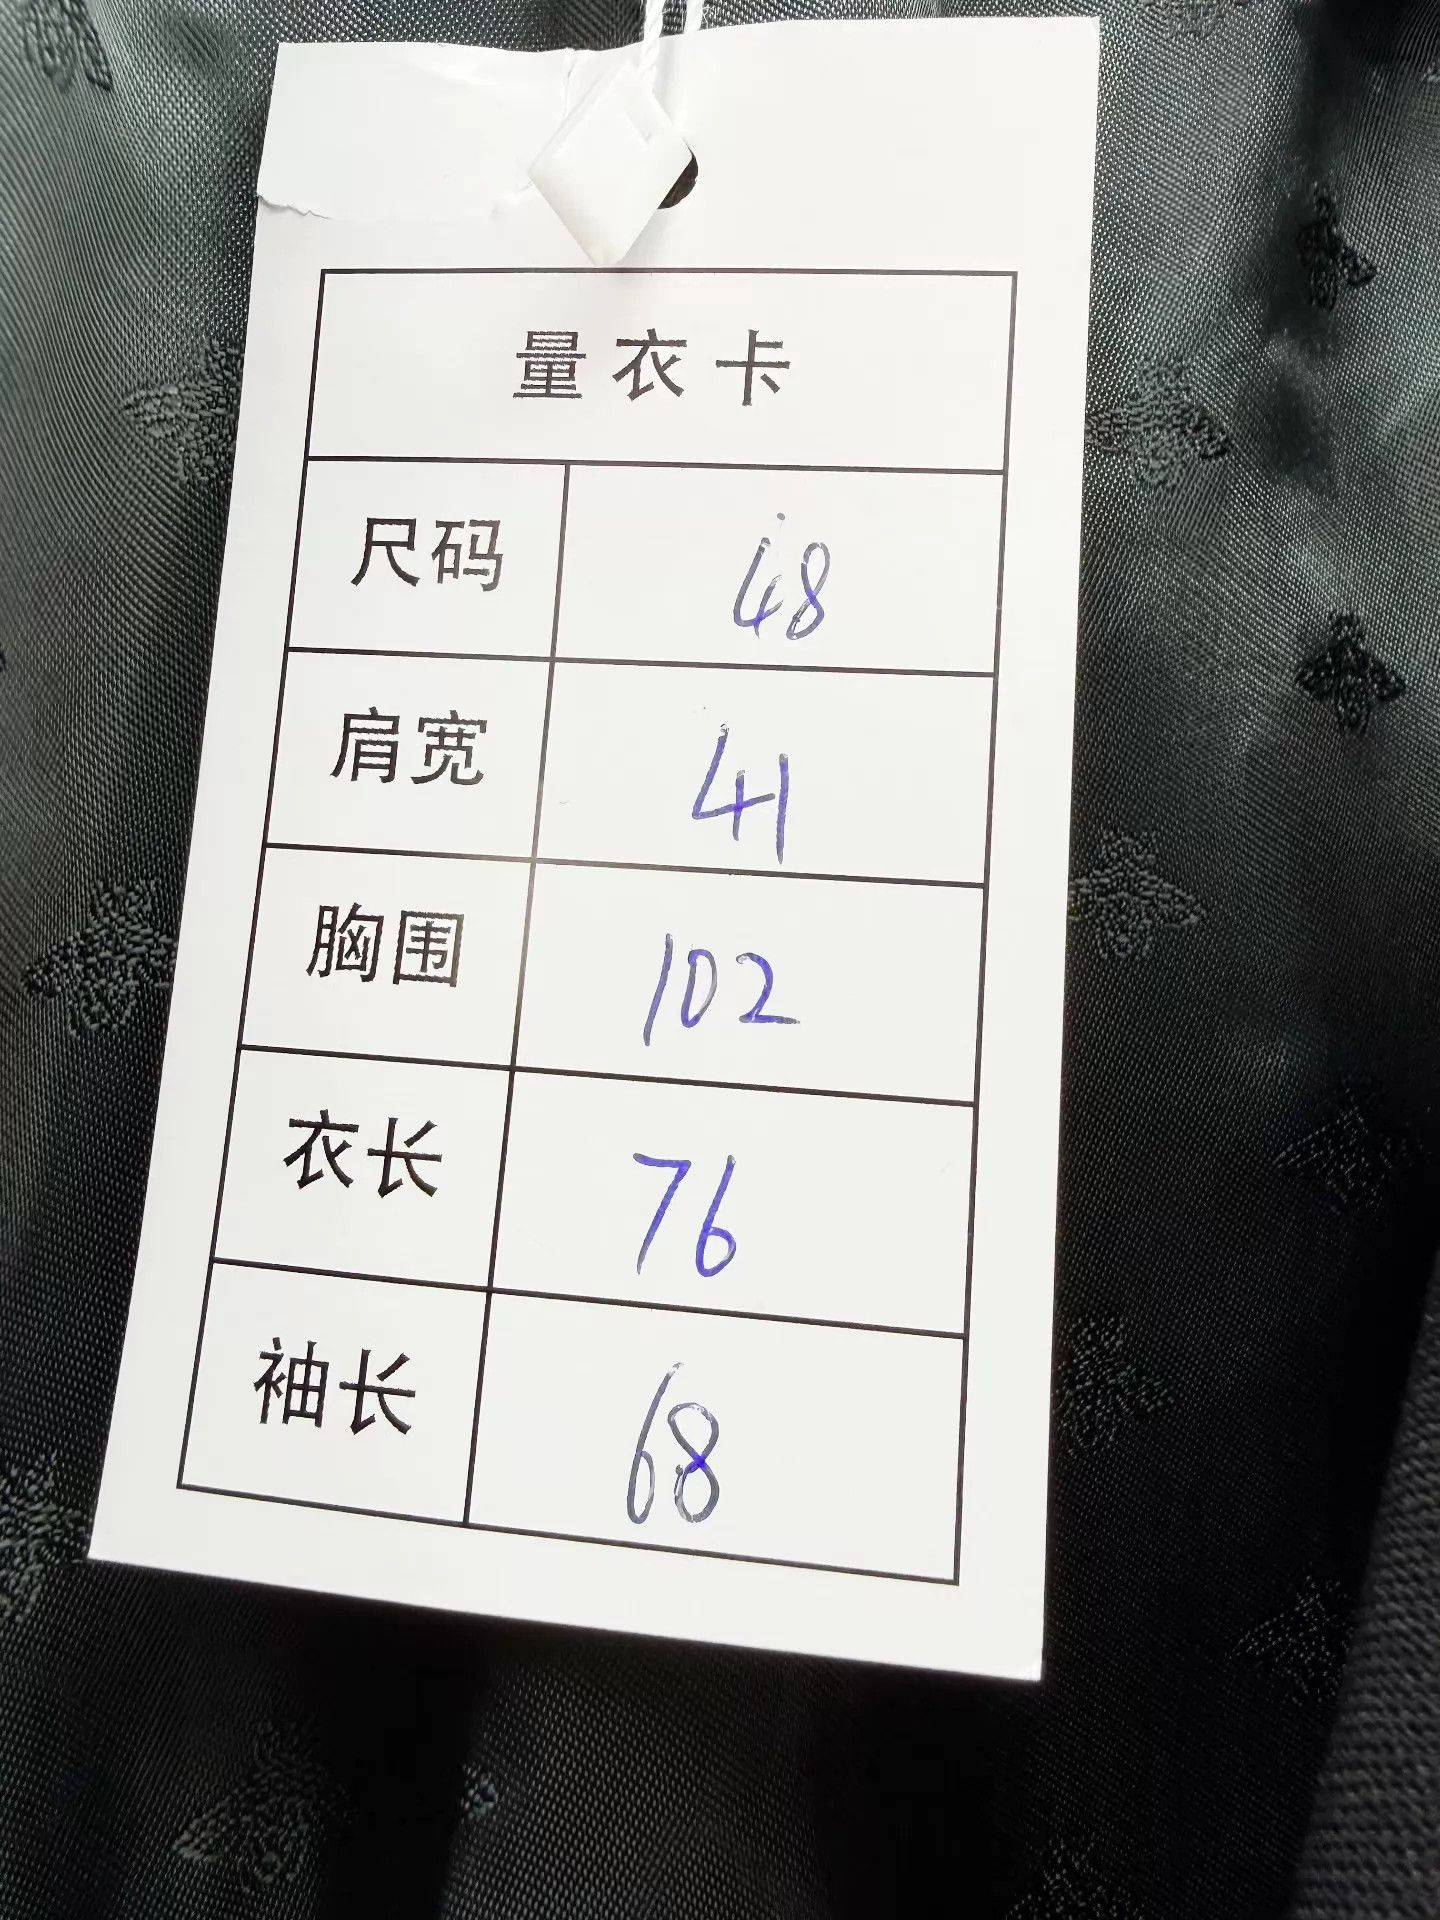 量衣卡
尺码 48
肩宽 41
胸围 102
衣长 76
袖长 68